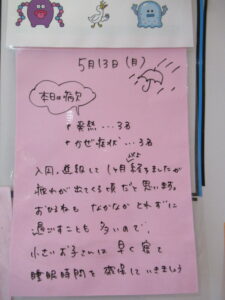 5月13日(月)
本日の病欠
+発熱…3名
+かぜ症状…3名
入園、進級して1ヶ月経ちましたが
疲れが出てくる頃だと思います。
おひるねもなかなかとれずに
過ごすことも多いので、
小さいお子さんは早く寝て
睡眠時間を確保していきましょう